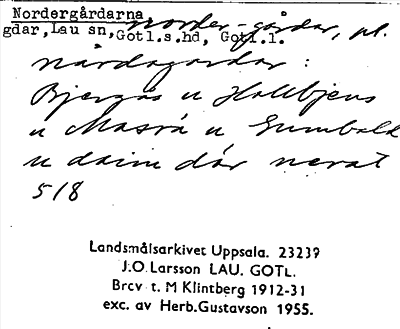 Nordergårdarna
gdar, Lau sn, Gotl.s.hd, Gotl.l.
norder-gårdar, pl.
nårdagardar :
Bjergås u Hallbjens
u Masrá u Gumbald
u daim där nerat
5/8
Landsmålsarkivet Uppsala. 23239
J.O. Larsson LAU. GOTL.
Brev t. M Klintberg 1912-31
exc. av Herb. Gustavson 1955.